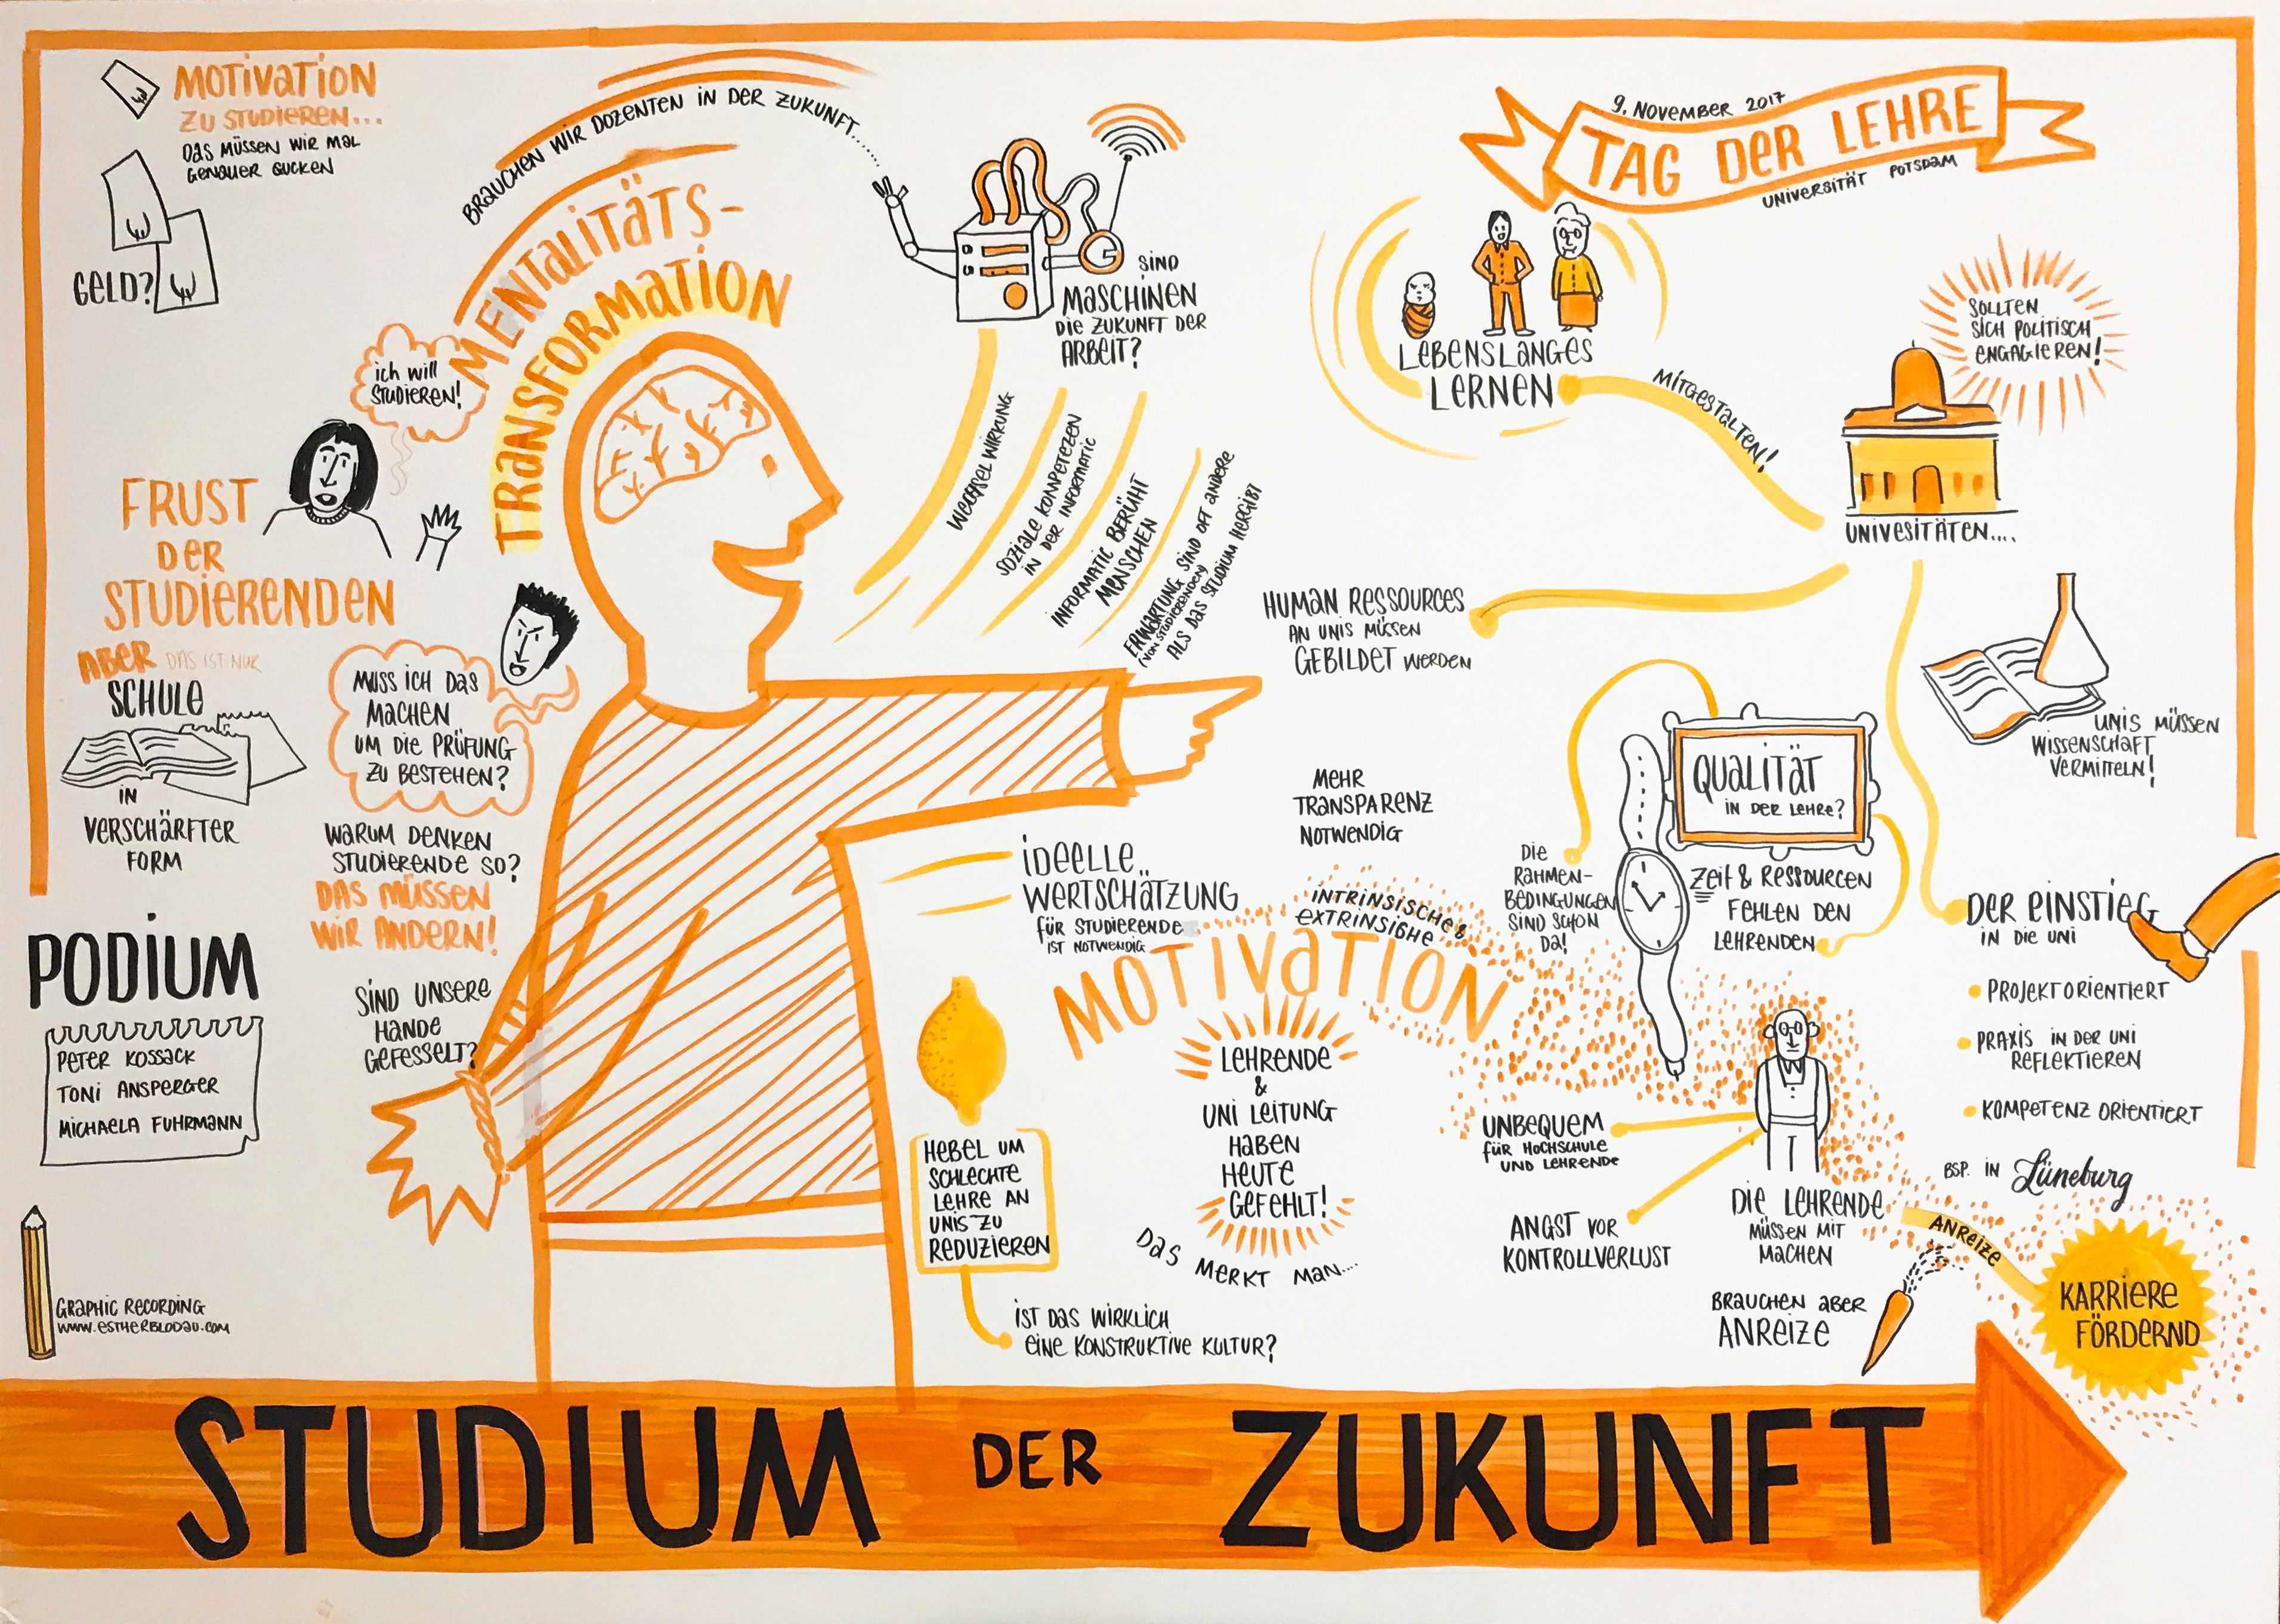 MOTIVATION
ZU STUDIEREN...
DAS MÜSSEN WIR MAL
GENAUER GUCKEN
GELD?
BRAUCHEN WIR DOZENTEN IN DER ZUKUNFT...
MENTALITÄTS-
TRANSFORMATION
SIND
MASCHINEN
DIE ZUKUNFT DER
ARBEIT?
9. NOVEMBER 2017
TAG DER LEHRE
UNIVERSITÄT POTSDAM
LEBENSLANGES
LERNEN
MITGESTALTEN!
SOLLTEN
SICH POLITISCH
ENGAGIEREN!
UNIVESITÄTEN....
ich will
STUDIEREN!
FRUST
DER
STUDIERENDEN
ABER DAS IST NUR
SCHULE
IN
VERSCHÄRFTER
FORM
MUSS ICH DAS
MACHEN
UM DIE PRÜFUNG
ZU BESTEHEN?
WARUM DENKEN
STUDIERENDE SO?
DAS MÜSSEN
WIR ÄNDERN!
SIND UNSERE
HÄNDE
GEFESSELT?
WECHSEL WIRKUNG
SOZIALE KOMPETEZEN
IN DER INFORMATIC
INFORMATIC BERÜHT
MENSCHEN
ERWARTUNG SIND OFT ANDERE
(VON STUDIERENDEN)
ALS DAS STUDIUM HERGIBT
HUMAN RESSOURCES
AN UNIS MÜSSEN
GEBILDET WERDEN
UNIS MÜSSEN
WISSENSCHAFT
VERMITTELN!
QUALITÄT
IN DER LEHRE?
MEHR
TRANSPARENZ
NOTWENDIG
DIE
RAHMEN-
BEDINGUNGEN
SIND SCHON
DA!
ZEIT & RESSOURCEN
FEHLEN DEN
LEHRENDEN
DER EINSTIEG
IN DIE UNI
PROJEKTORIENTIERT
PRAXIS IN DER UNI
REFLEKTIEREN
KOMPETENZ ORIENTIERT
BSP. IN Lüneburg
IDEELLE
WERTSCHÄTZUNG
FÜR STUDIERENDE
IST NOTWENDIG
INTRINSISCHE &
EXTRINSISHE
MOTIVATION
LEHRENDE
&
UNI LEITUNG
HABEN
HEUTE
GEFEHLT!
DAS MERKT MAN....
HEBEL UM
SCHLECHTE
LEHRE AN
UNIS ZU
REDUZIEREN
IST DAS WIRKLICH
EINE KONSTRUKTIVE KULTUR?
UNBEQUEM
FÜR HOCHSCHULE
UND LEHRENDE
ANGST VOR
KONTROLLVERLUST
DIE LEHRENDE
MÜSSEN MIT
MACHEN
BRAUCHEN ABER
ANREIZE
ANREIZE
KARRIERE
FÖRDERND
PODIUM
PETER KOSSACK
TONI ANSPERGER
MICHAELA FUHRMANN
GRAPHIC RECORDING
WWW.ESTHERBLODAU.COM
STUDIUM DER ZUKUNFT